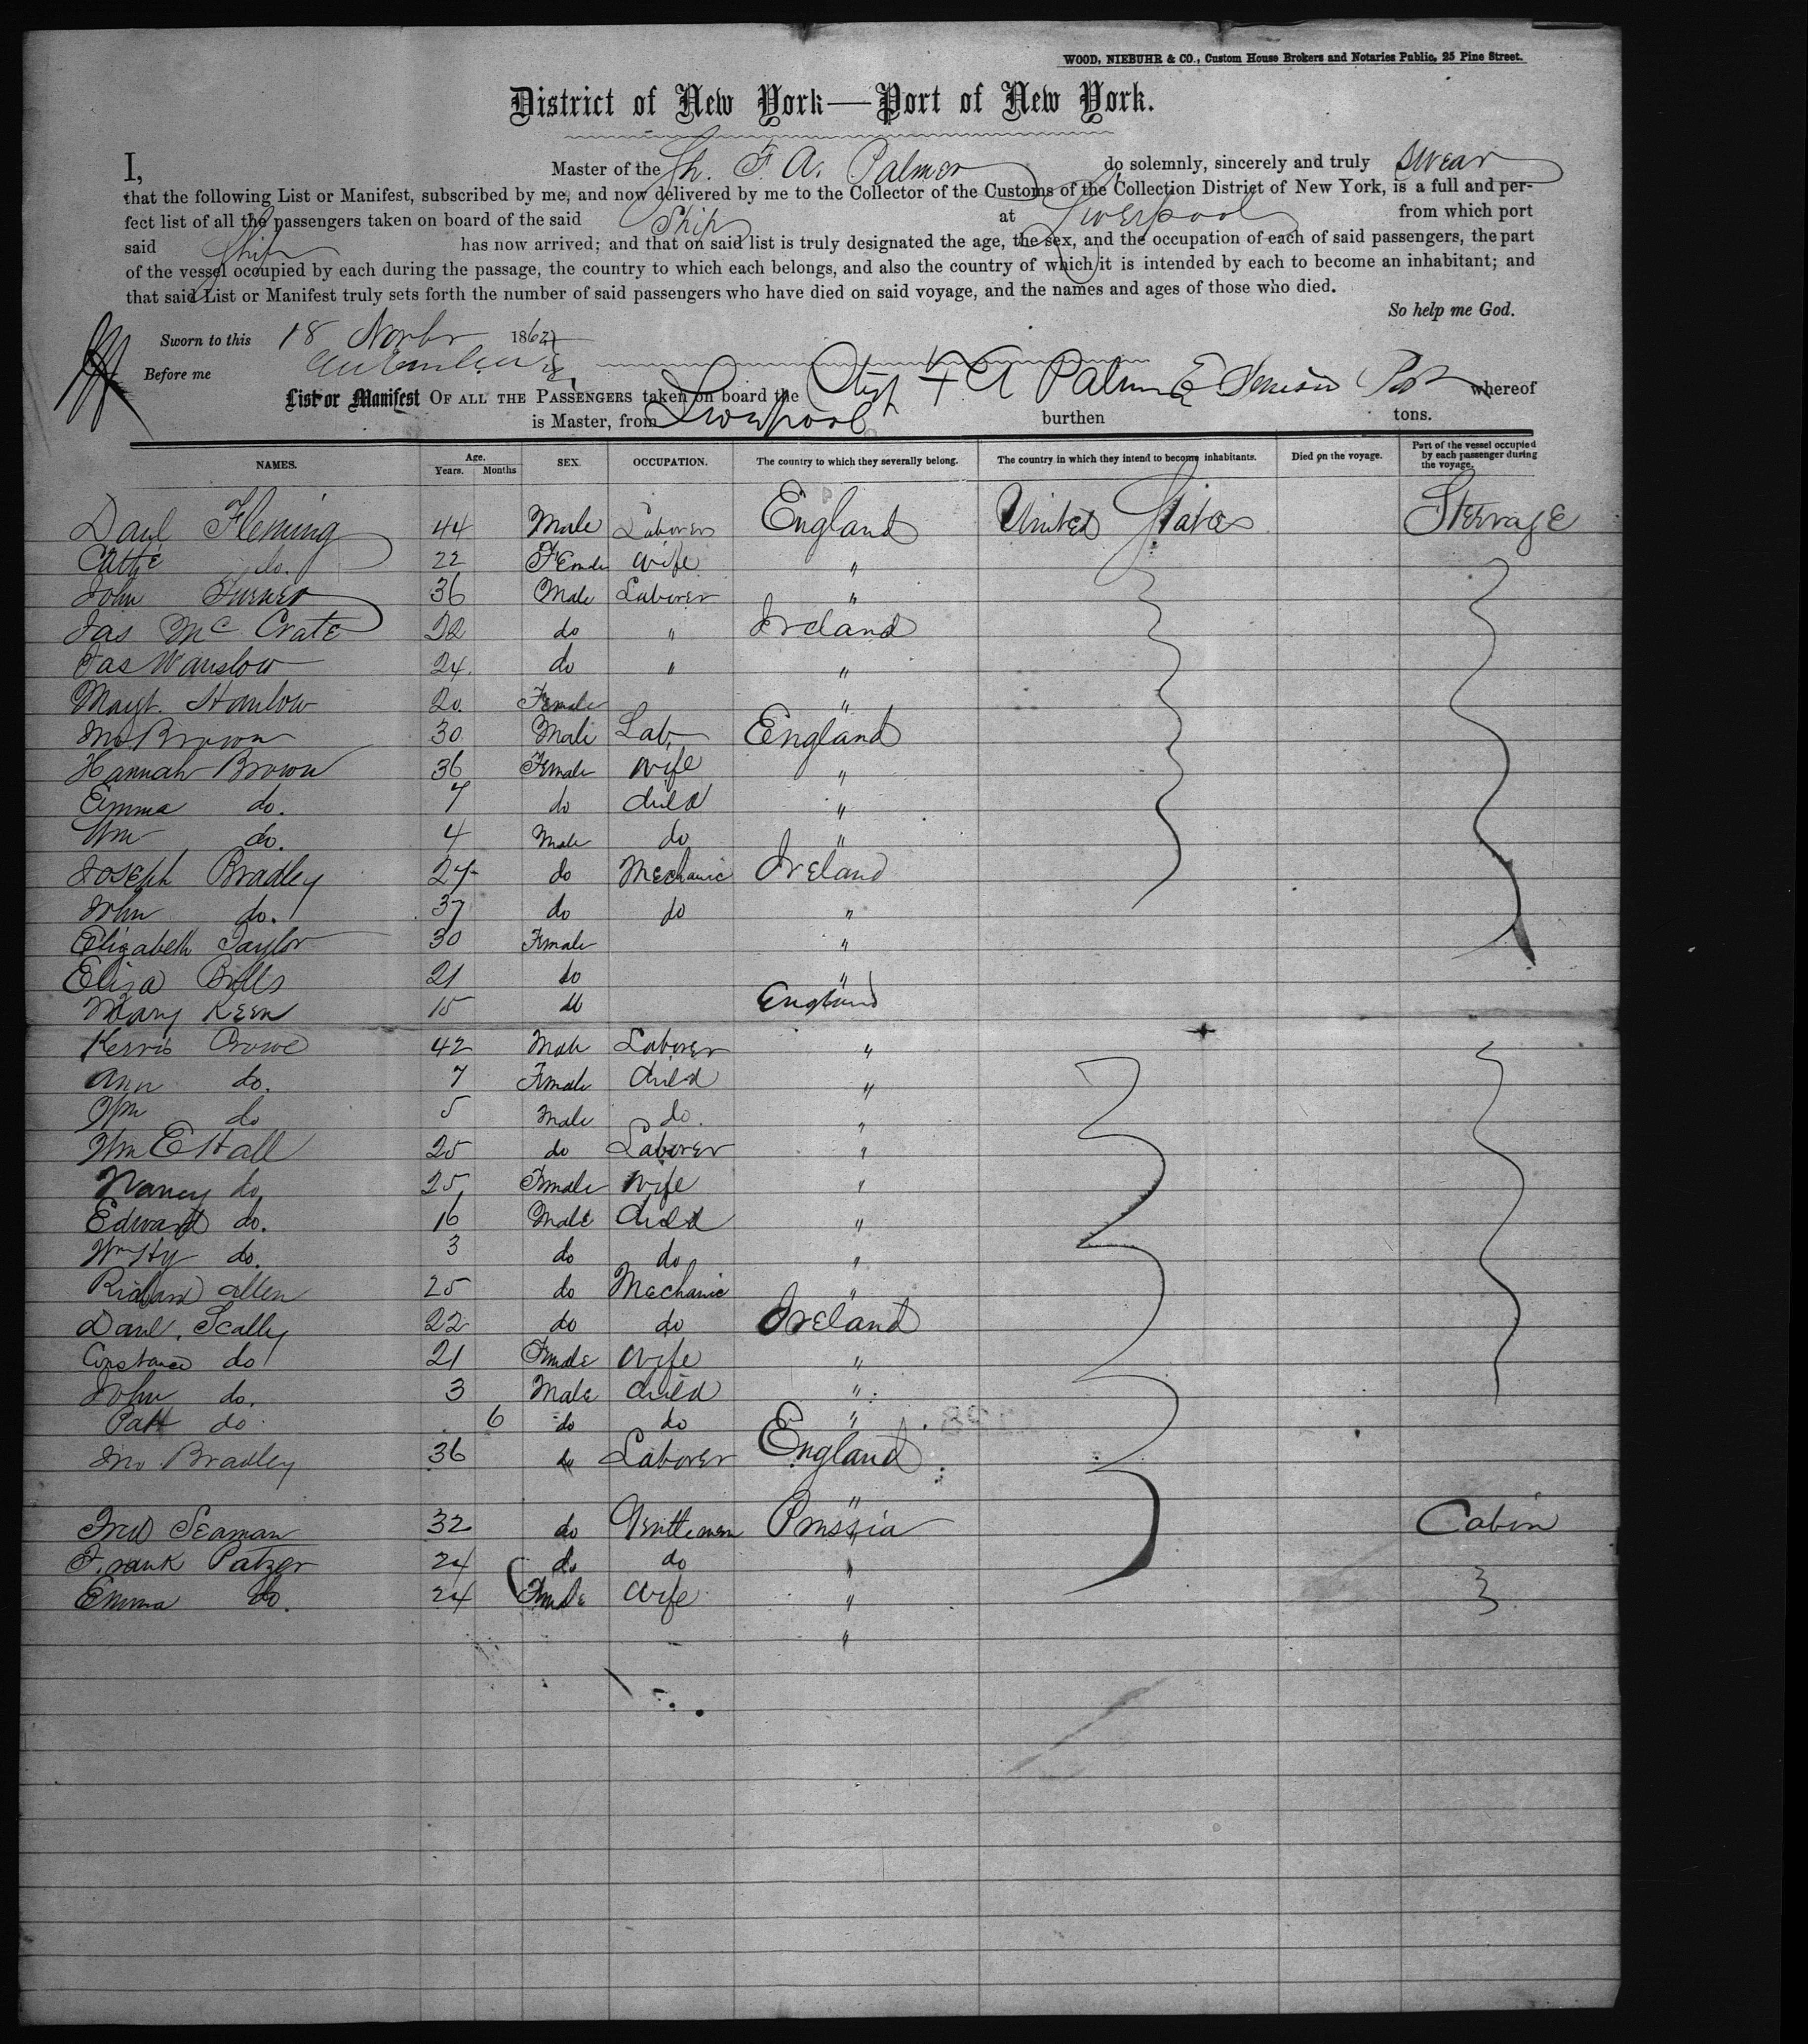 WOOD, NIEBUHR & CO., Custom House Brokers and Notaries Public, 25 Pine Street.
District of New York—Port of New York.
I, Master of the Sh. F. A. Palmer do solemnly, sincerely and truly swear
that the following List or Manifest, subscribed by me, and now delivered by me to the Collector of the Customs of the Collection District of New York, is a full and per-
fect list of all the passengers taken on board of the said Ship at Liverpool from which port
said Ship has now arrived; and that on said list is truly designated the age, the sex, and the occupation of each of said passengers, the part
of the vessel occupied by each during the passage, the country to which each belongs, and also the country of which it is intended by each to become an inhabitant; and
that said List or Manifest truly sets forth the number of said passengers who have died on said voyage, and the names and ages of those who died.
So help me God.
Sworn to this 18 Novbr 186
Before me
List or Manifest OF ALL THE PASSENGERS taken on board the Ship F A Palmer whereof
is Master, from Liverpool burthen tons.
NAMES. Age. Years. Months SEX. OCCUPATION. The country to which they severally belong. The country in which they intend to become inhabitants. Died on the voyage. Part of the vessel occupied by each passenger during the voyage.
Danl Fleming 44 Male Laborer England United States Steerage
Cathe do. 22 Female Wife "
John Turner 36 Male Laborer "
Jas McCrate 22 do " Ireland
Jas Wanslow 24 do " "
Magt. Hanlow 20 Female "
Jno Brown 30 Male Lab England
Hannah Brown 36 Female Wife "
Emma do. 7 do child "
Wm do. 4 Male do "
Joseph Bradley 27 do Mechanic Ireland
John do. 37 do do "
Elizabeth Taylor 30 Female "
Eliza Bills 21 do "
Mary Keen 15 do England
Crowe 42 Male Laborer "
Ann do. 7 Female Child "
Wm do 5 Male do. "
Wm E Hall 25 do Laborer "
Nancy do. 25 Female Wife "
Edward do. 16 Male Child "
Wm Hy do. 3 do do "
Richard Allen 25 do Mechanic "
Danl. Scally 22 do do Ireland
Constance do 21 Female Wife "
John do. 3 Male child "
Patt do 6 do do "
Jno Bradley 36 do Laborer England
"
Fred Seaman 32 do Gentleman Prussia Cabin
Frank Patzer 24 do do "
Emma do. 24 Female Wife "
"